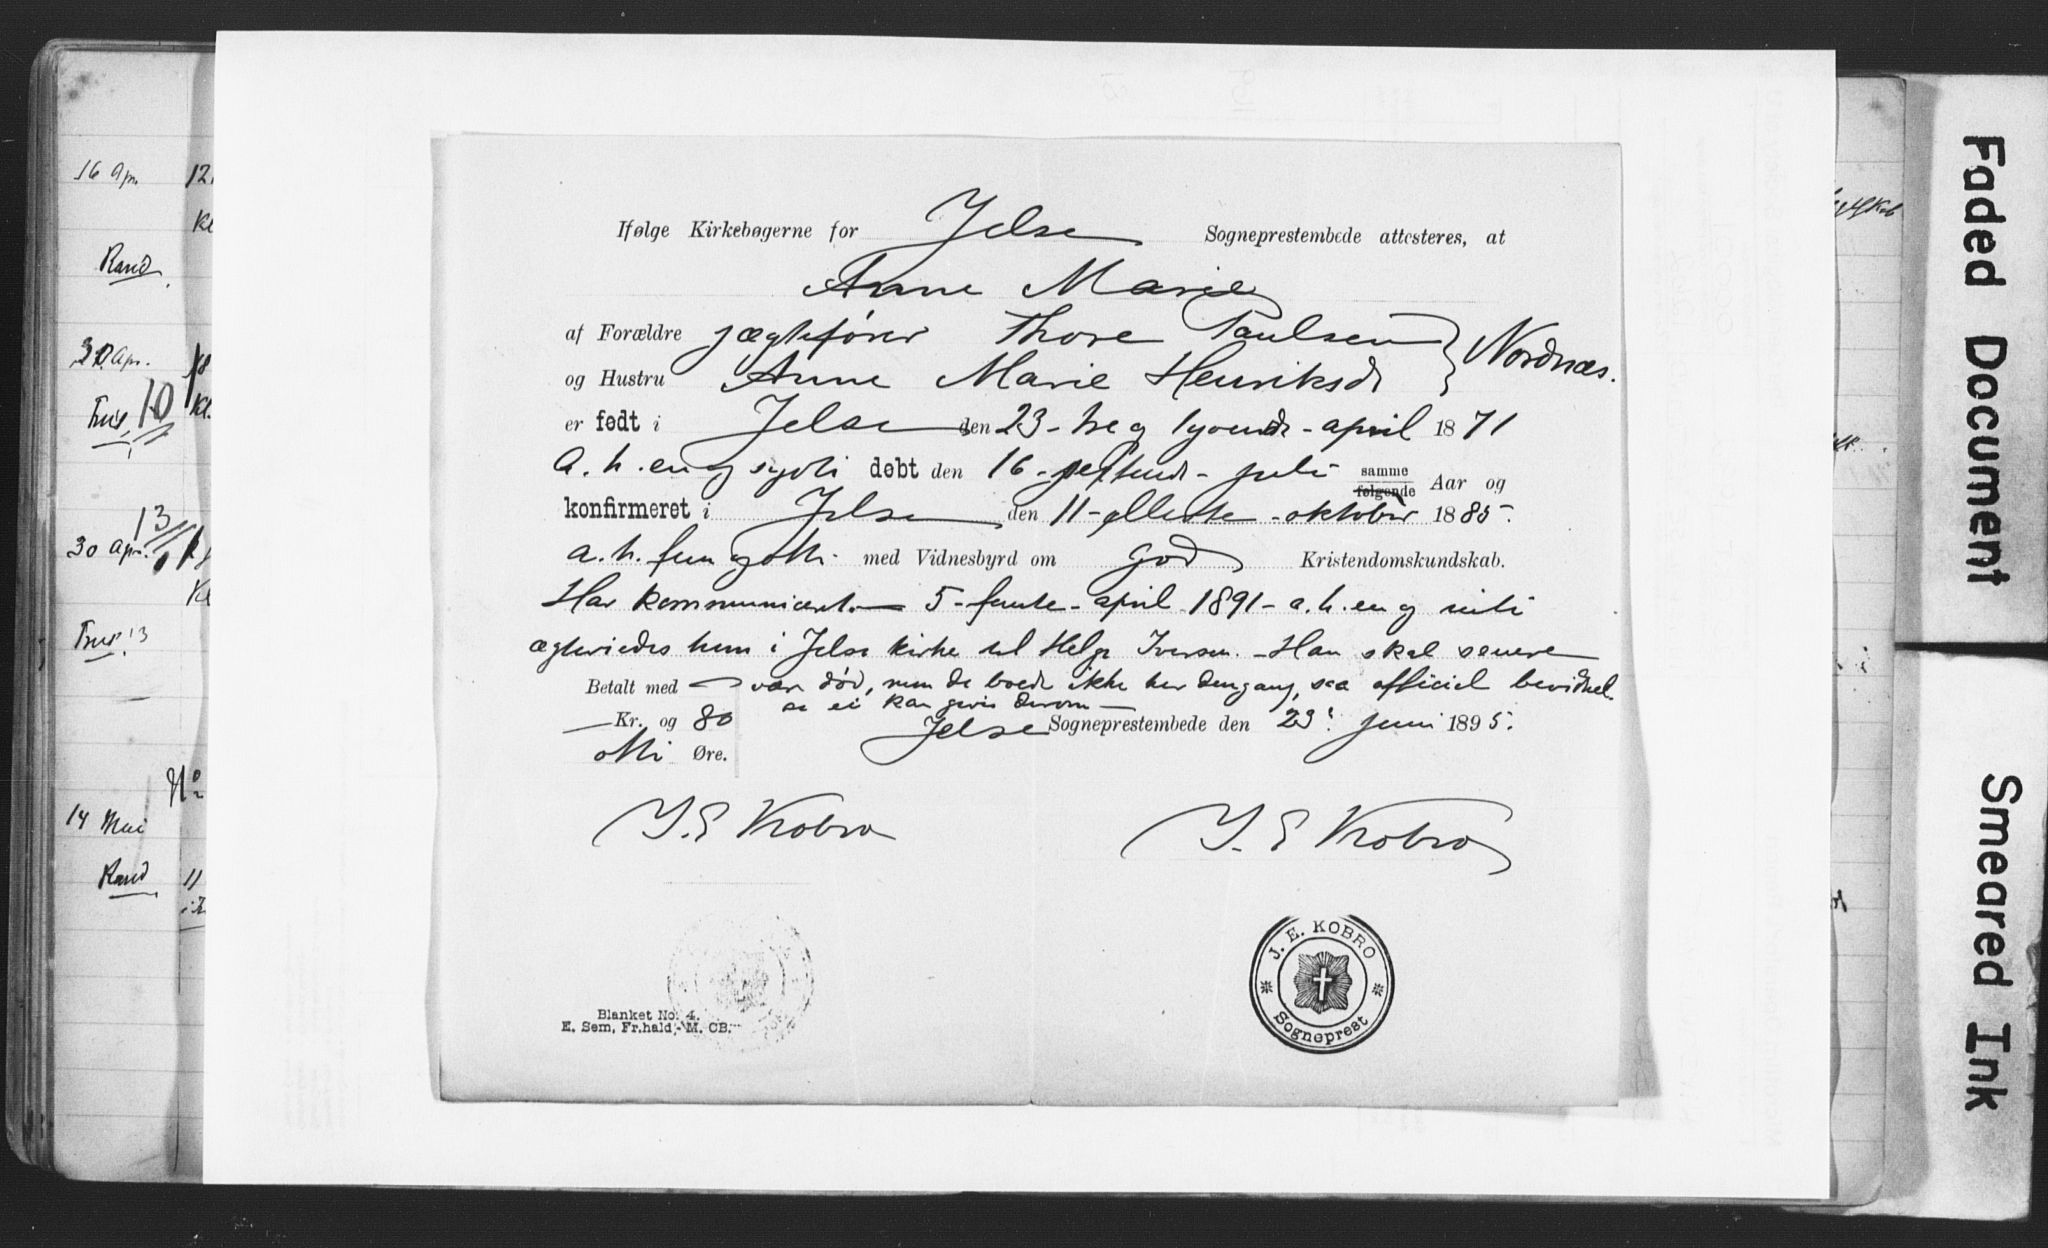 Ifølge Kirkebøgerne for Jelse Sogneprestembede attesteres, at
Anne Marie
af Forældre jægtefører Thore Paulsen
og Hustru Anne Marie Henriksd Nordnæs.
er født i Jelse den 23 - tre og tyvende - april 1871
a. h. en og sytti døbt den 16 - sextende - juli samme følgende Aar og
konfirmeret i Jelse den 11 - ellevte - oktober 1885.
a. h. fem og otti med Vidnesbyrd om god Kristendomskundskab.
Har kommuniceret 5 - femte - april 1891 - a. h. en og niti
ægteviedes hun i Jelse kirke til Helge Iversen. - Han skal senere
Betalt med være død, men de boede ikke her dengang, saa officiel bevidnel-
se ei kan gives derom -
Kr. og 80 Jelse Sogneprestembede den 23' juni 1895.
otti Øre.
J. E Kobro J. E Kobro
J. E. KOBRO
Sogneprest
Blanket No. 4.
E. Sem, Fr.hald,-M. CB.
16 Apr. 12
Kl
Rand.
30 Apr. 18
10
Kl.
13
30 Apr.
Kl
13
No
14 Mai
Rand 11
Faded Document
Smeared Ink